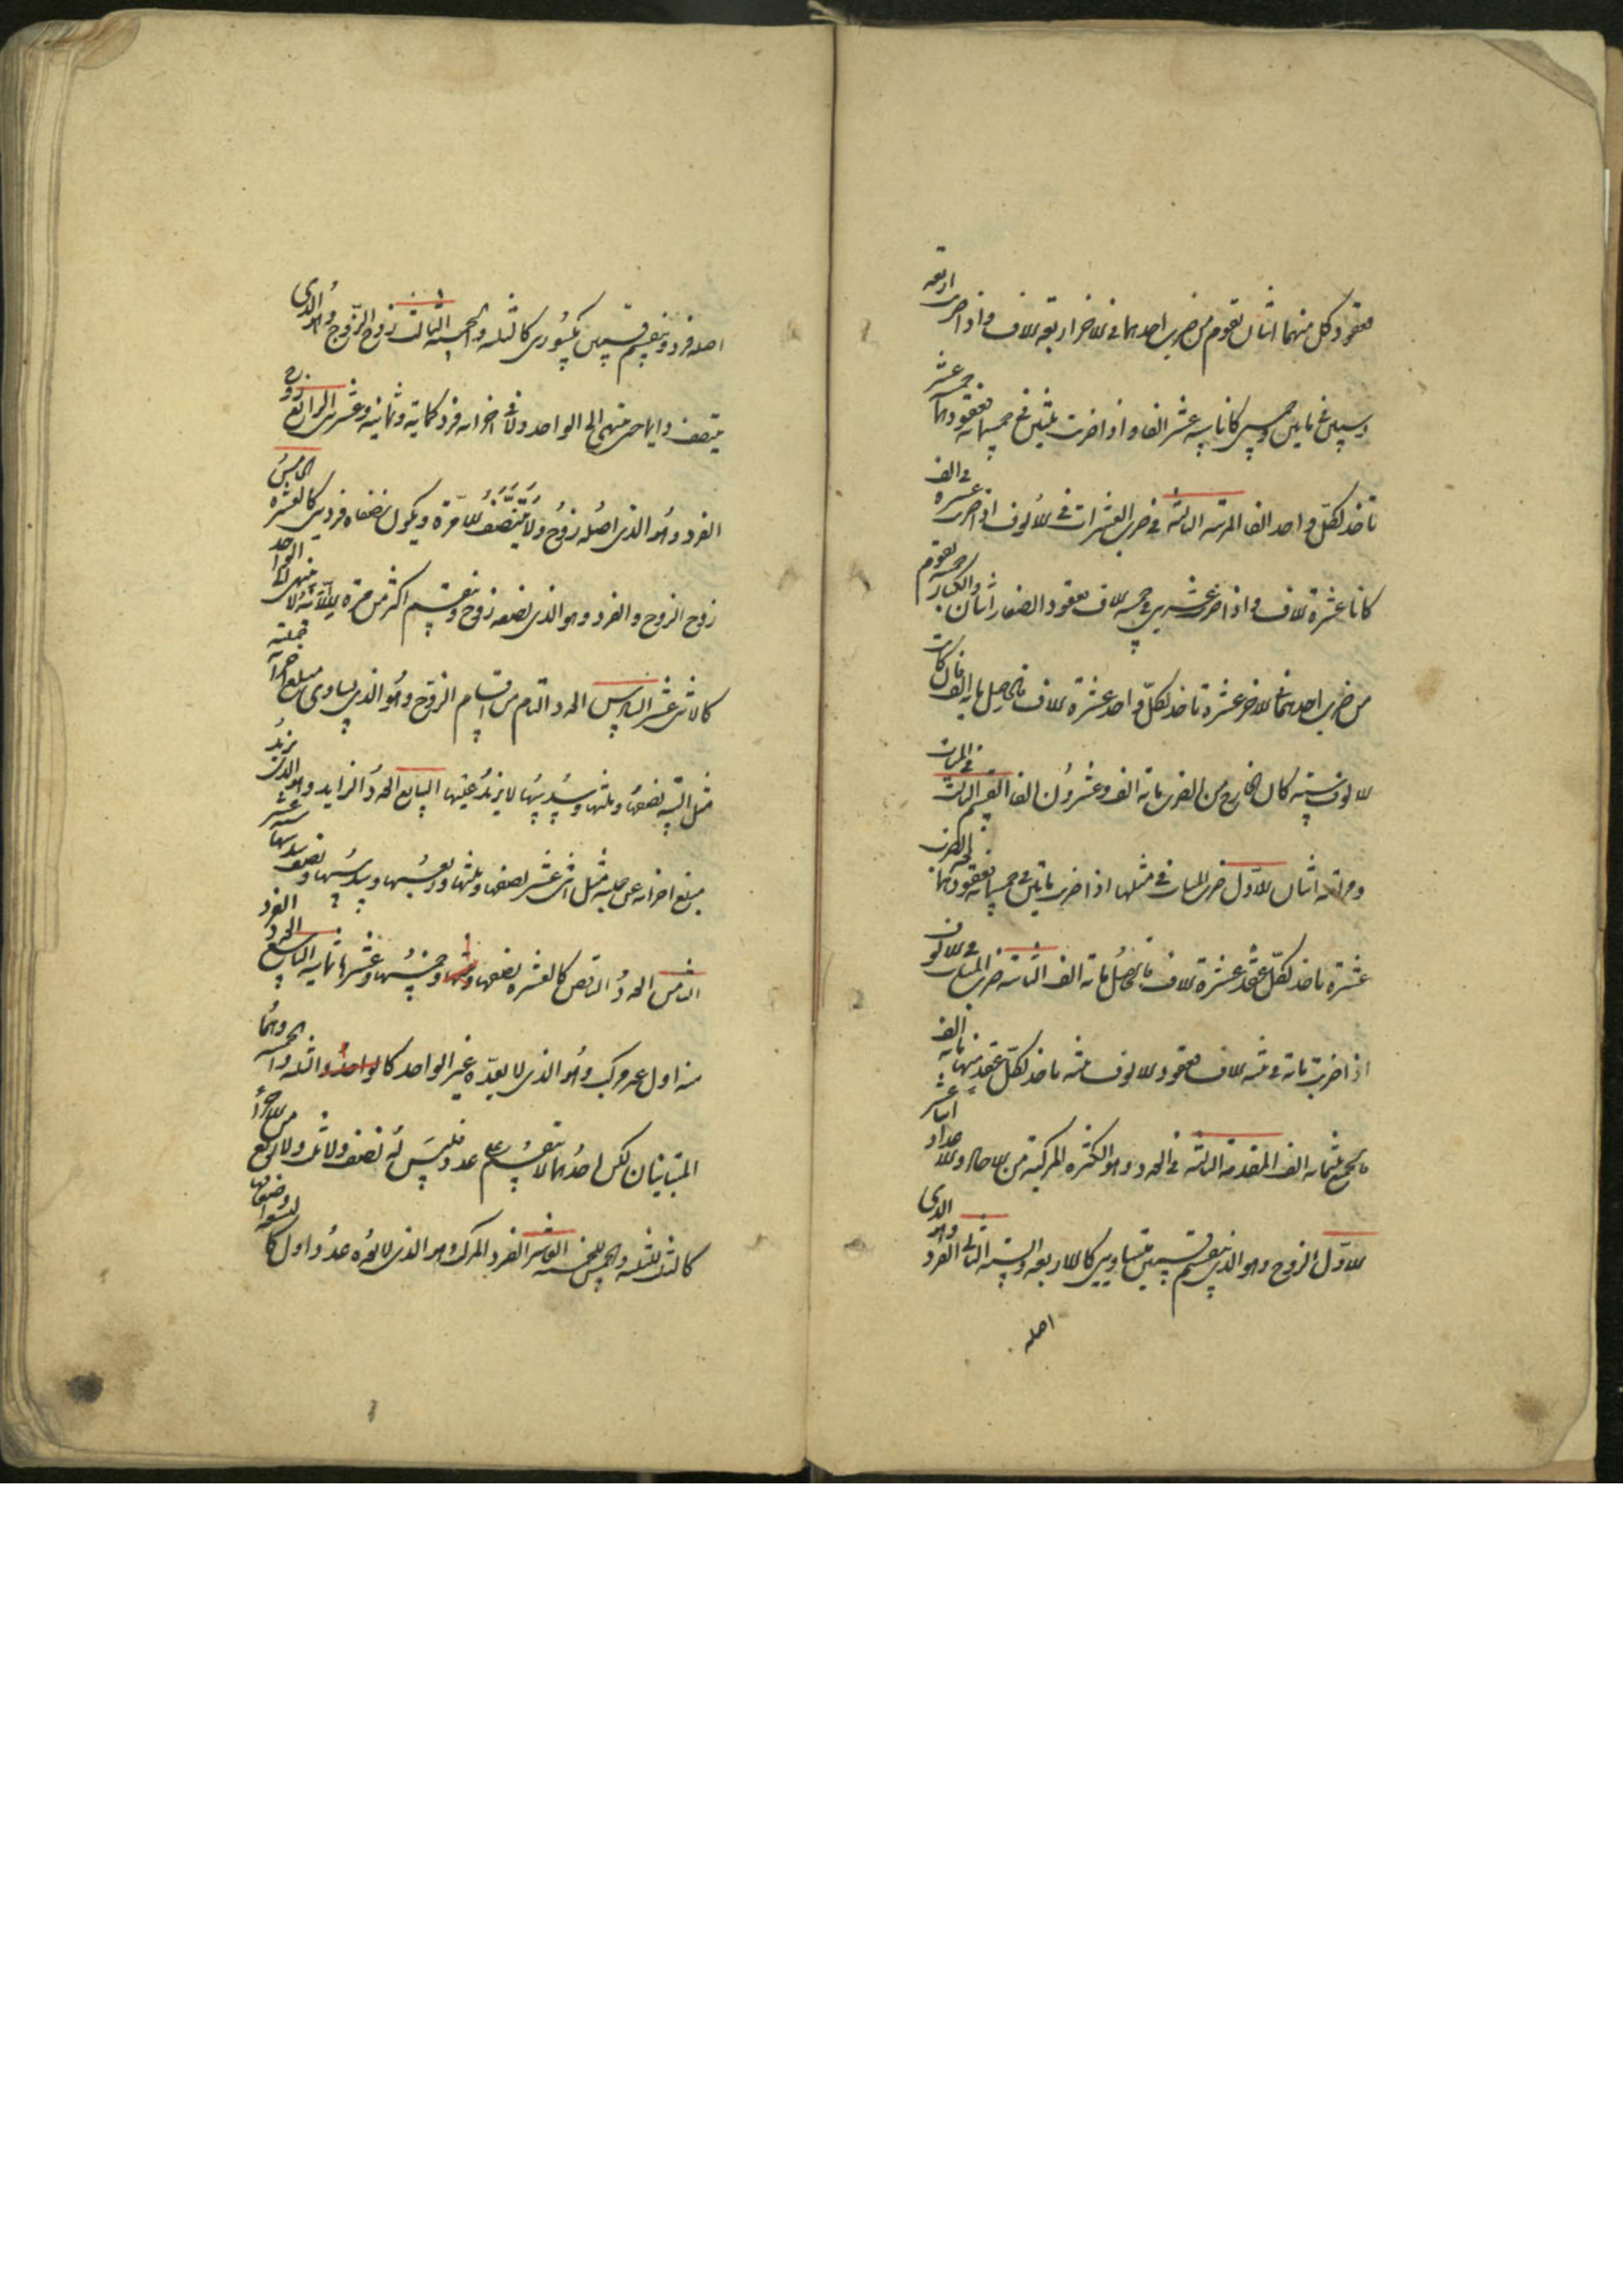 فعقود كل منهما اثنان تقوم من ضرب احدهما في الاخر اربعة الاف واذا ضربت اربعة
وستين في مايتين وخمسين كانا ستة عشر الفا واذا ضربت ثلثين في خمسماية فعقودهما خمسة عشر
تاخذ لكل واحد الفا المرتبة الثالثة في ضرب العشرات في الالوف اذا ضربت عشرة في الف
كانا عشرة الاف واذا ضربت عشرين في خمسة الاف فعقود الصغار اثنان والكبار خمسة يقوم
من ضرب احدهما في الاخر عشرة تاخذ لكل واحد عشرة الاف فالحاصل ماية الف فان كانت
الالوف ستة كان الخارج من الضرب ماية الف وعشرون الفا القسم الثالث في المئات
ومراتبه اثنان الاول ضرب المئات في مثلها اذا ضربت مايتين في خمسماية فعقودهما بالضرب
عشرة تاخذ لكل عقد عشرة الاف فالحاصل ماية الف الثانية ضرب المئات في الالوف
اذا ضربت ماية في ثلثة الاف فعقود الالوف ثلثة تاخذ لكل عقد منها ماية الف
فالجميع ثلثماية الف المقدمة الثالثة في العدد وهو الكثرة المركبة من الاحاد والاعداد اثنا عشر
الاول الزوج وهو الذي ينقسم قسمين متساويين كالاربعة والستة الثاني الفرد وهو الذي
اصله
اصله فرد وينقسم قسمين بكسورى كالثلثة والخمسة الثالث زوج الزوج وهو الذي
يتنصف دايما حتى ينتهي الى الواحد ولا في اجزائه فرد كماية وثمانية وعشرين الرابع زوج
الفرد وهو الذي اصله زوج ولا يتنصف الا مرة ويكون نصفاه فردين كالعشرة الخامس
زوج الزوج والفرد وهو الذي نصفه زوج وينقسم اكثر من مرة الا انه لا ينتهي الى الواحد
كالاثنى عشر السادس العدد التام من اقسام الزوج وهو الذي يساوى مبلغ اجزائه جملته
مثل الستة نصفها وثلثها وسدسها لا يزيد عنها السابع العدد الزايد وهو الذي يزيد
مبلغ اجزائه عن جملته مثل اثنى عشر نصفها وثلثها وربعها وسدسها ونصف سدسها ستة عشر
الثامن العدد الناقص كالعشرة نصفها وخمسها وعشرها ثمانية التاسع العدد الفرد
منه اول غير مركب وهو الذي لا يعده غير الواحد كالواحد والثلثة والخمسة وهما
المتباينان لكن احدهما لا ينقسم على عدد فليس له نصف ولا ثلث ولا ربع من الاجزاء
كالثلث للثلثة والخمس للخمسة العاشر الفرد المركب وهو الذي لا يعده عدد اول كالتسعة